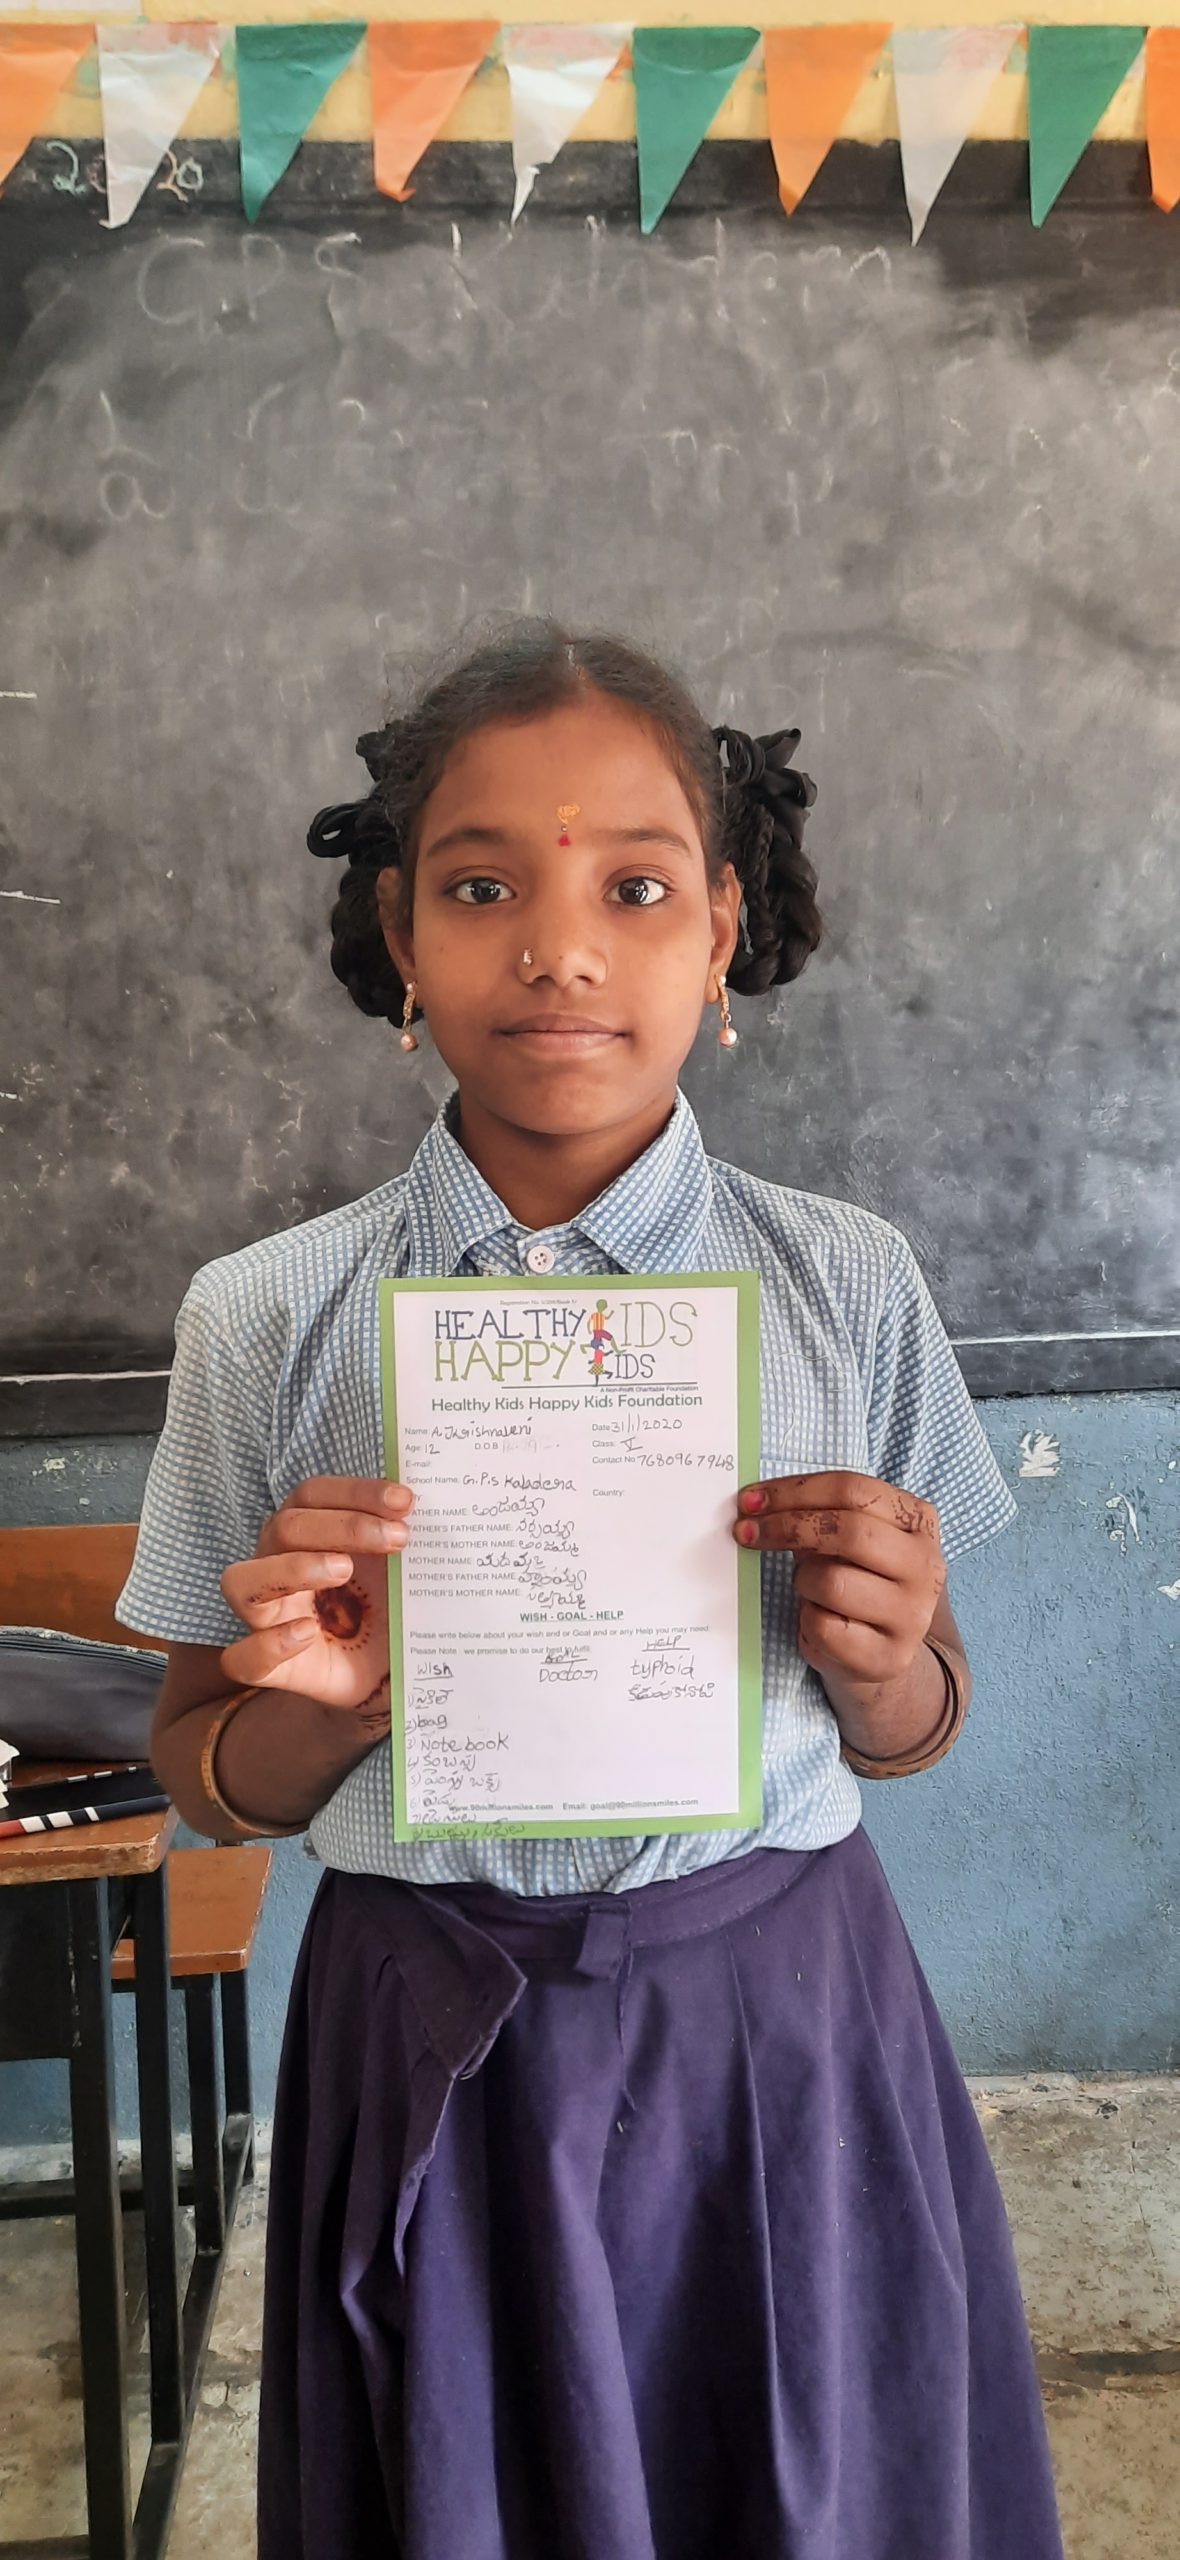 2020
GPS
HEALTHY KIDS
HAPPY KIDS
A Non-Profit Charitable Foundation
Healthy Kids Happy Kids Foundation
Name: A. Krishnaveni Date 31/1/2020
Age: 12 D.O.B Class: V
E-mail: Contact No 7680967948
School Name: G.P.S Kaladera Country:
FATHER NAME: అంజయ్య
FATHER'S FATHER NAME: నర్సయ్య
FATHER'S MOTHER NAME: అంజమ్మ
MOTHER NAME: యాదమ్మ
MOTHER'S FATHER NAME:
MOTHER'S MOTHER NAME:
WISH - GOAL - HELP
Please write below about your wish and or Goal and or any Help you may need:
Please Note: we promise to do our best to fulfil:
Wish GOAL HELP
Doctor typhoid
1) సైకిల్ కడుపుకోనొపి
2) bag
3) Note book
4) కంబాక్సు
5) పెన్సిల్ బాక్స్
6)
www.90millionsmiles.com Email: goal@90millionsmiles.com